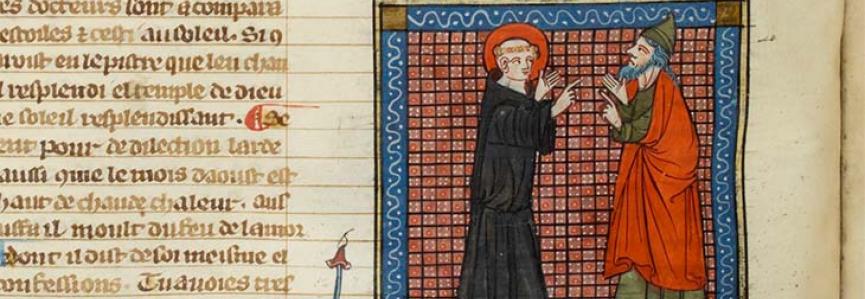 es docteurs sont a compara
estoiles ⁊ cesti au soleil. Si 9
en lepistre que len chan
resplendi el temple de dieu
e soleil resplendissant. Se
pour de dilection larde
aussi que le mois daoust est
haut de chaude chaleur. aus
il moult du feu de lamor
dont il dist de soi meisme el
confessions. Tu auoies tres